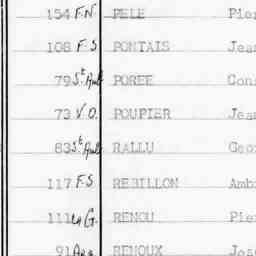 154 F.N PELE Pier
108 F.S PONTAIS Jean
79 St Aub POREE Cons
73 V.O. POUPIER Jean
83 St Aub RALLU Geor
117 F.S REBILLON Ambr
111 G. RENOU Pier
91 RENOUX Jose